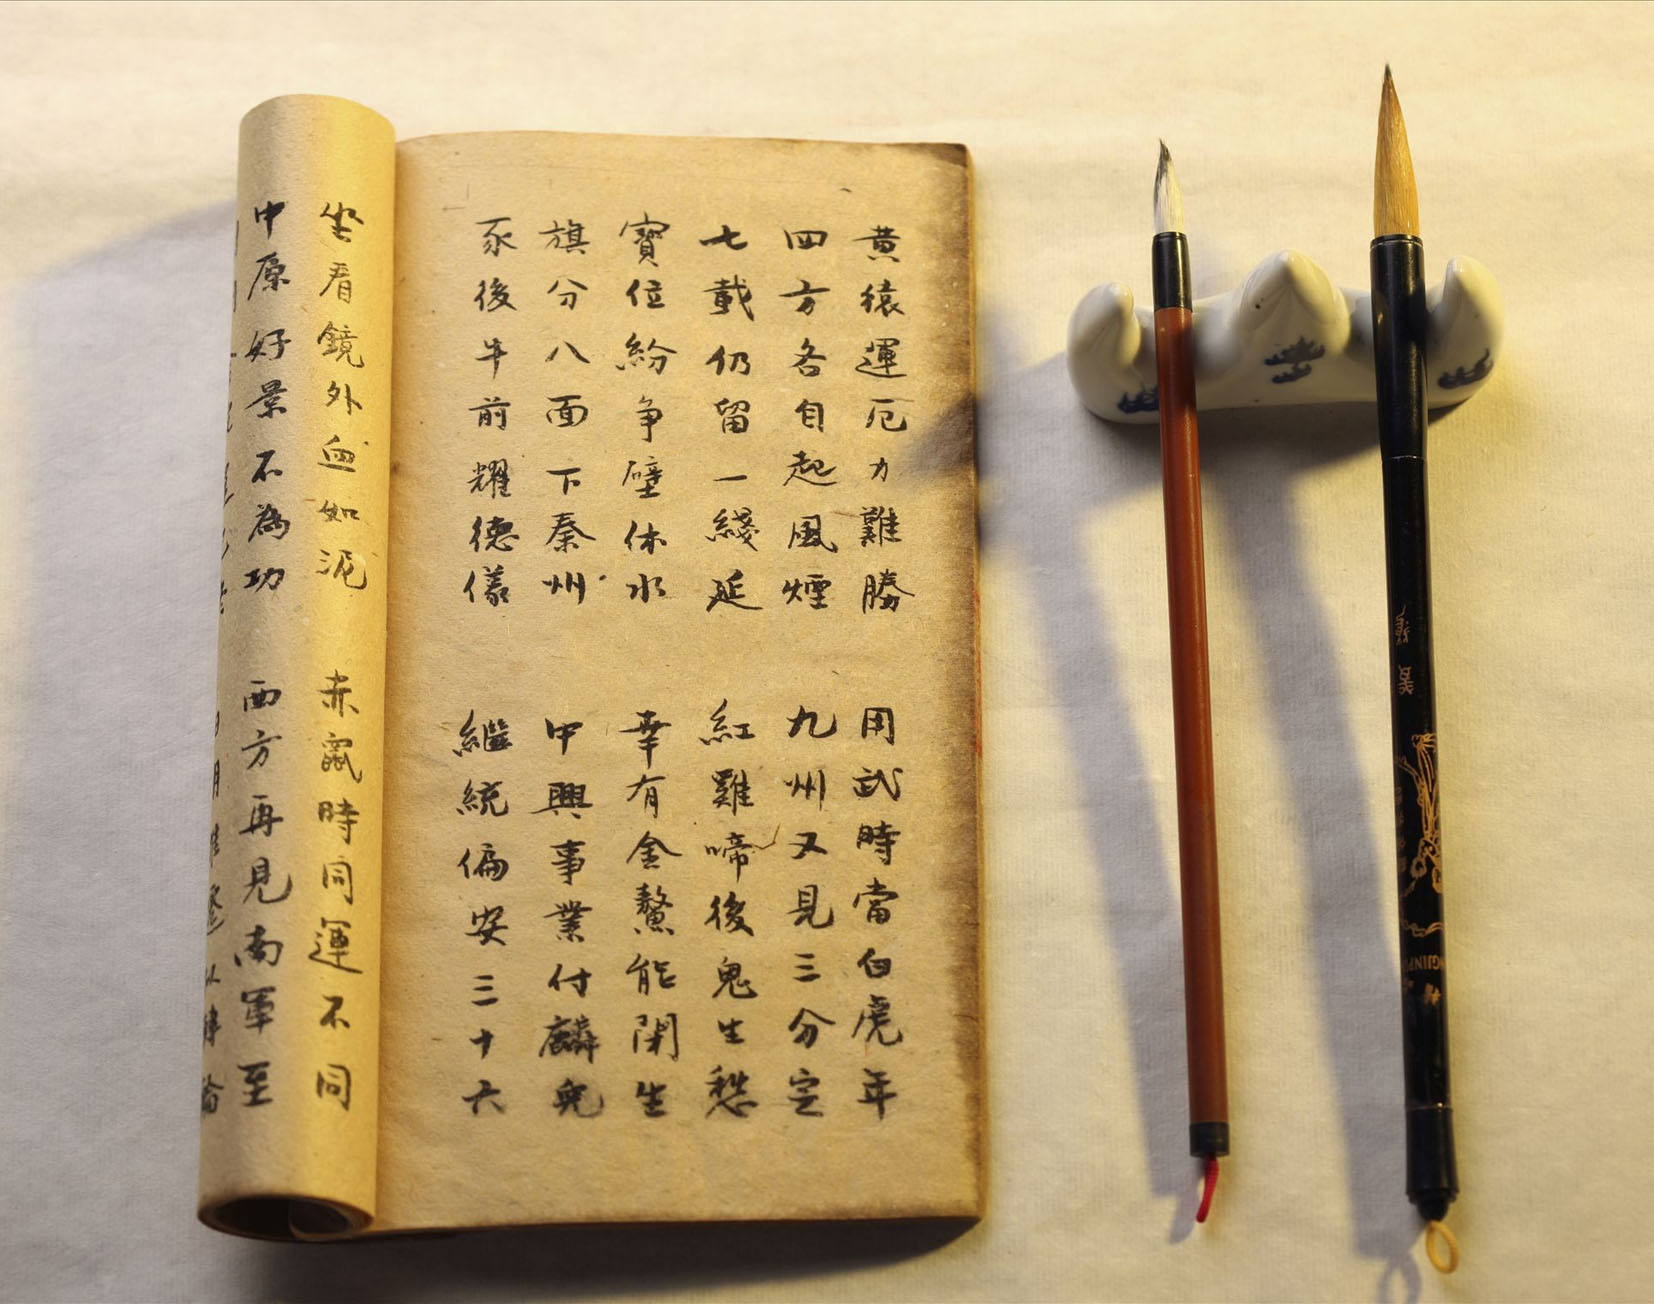 黄猿運厄力難勝
用武時當白虎年
四方各自起風煙
九州又見三分定
七載仍留一綫延
紅雞啼後鬼生愁
寶位紛争壁休水
幸有金鰲能閑生
旗分八面下秦州
中興事業付麟兒
豕後牛前耀德儀
繼統偏安三十六
坐看鏡外血如泥
赤鼠時同運不同
中原好景不為功
西方再見南軍至